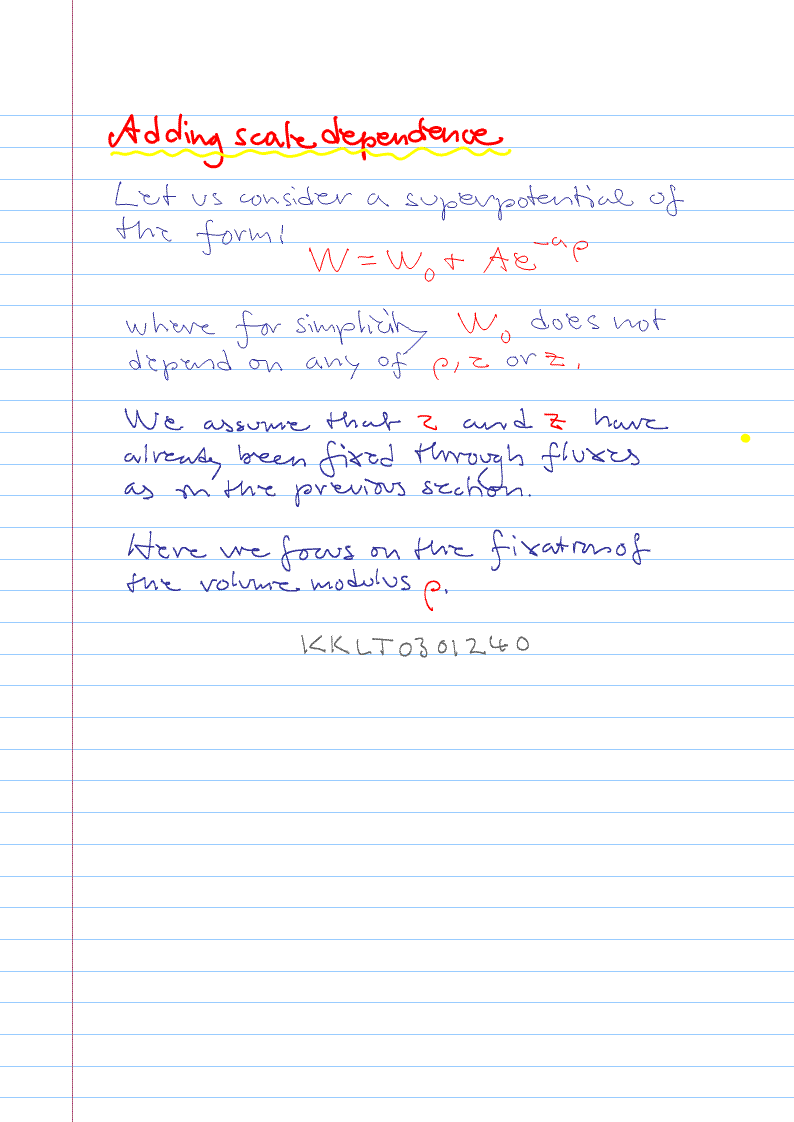 Adding scale dependence
Let us consider a superpotential of
the form:
W = W₀ + Ae^{-aρ}
where for simplicity W₀ does not
depend on any of ρ, τ or z.
We assume that τ and z have
already been fixed through fluxes
as in the previous section.
Here we focus on the fixation of
the volume modulus ρ.
KKLT0301240